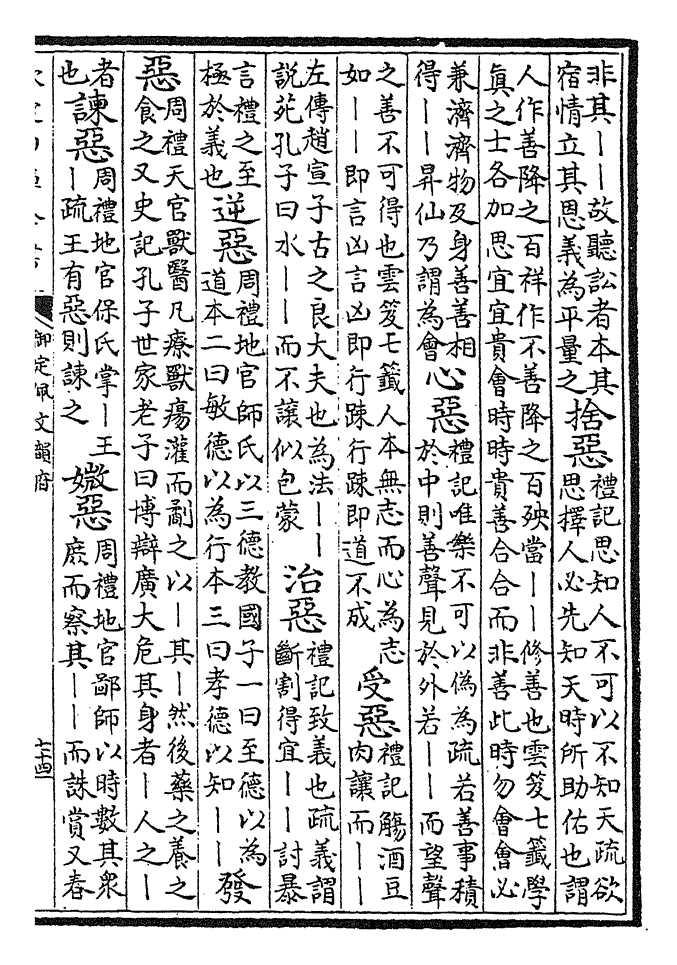 非其丨丨故聽訟者本其
宿情立其恩義為平量之
捨惡
禮記思知人不可以不知天疏欲
思擇人必先知天時所助佑也謂
人作善降之百祥作不善降之百殃當丨丨修善也雲笈七籤學
真之士各加思宜宜貴會時時貴善合合而非善此時勿會會必
兼濟濟物及身善善相
得丨丨昇仙乃謂為會
心惡
禮記唯樂不可以偽為疏若善事積
於中則善聲見於外若丨丨而望聲
之善不可得也雲笈七籤人本無志而心為志
如丨丨即言凶言凶即行踈行踈即道不成
受惡
禮記觴酒豆
肉讓而丨丨
左傳趙宣子古之良大夫也為法丨丨
說苑孔子曰水丨丨而不讓似包蒙
治惡
禮記致義也疏義謂
斷割得宜丨丨討暴
言禮之至
極於義也
逆惡
周禮地官師氏以三德教國子一曰至德以為
道本二曰敏德以為行本三曰孝德以知丨丨
發
惡
周禮天官獸醫凡療獸瘍灌而劀之以丨其丨然後藥之養之
食之又史記孔子世家老子曰博辯廣大危其身者丨人之丨
者
也
諫惡
周禮地官保氏掌丨王
丨疏王有惡則諫之
媺惡
周禮地官鄙師以時數其衆
庶而察其丨丨而誅賞又春
御定佩文韻府
七十四